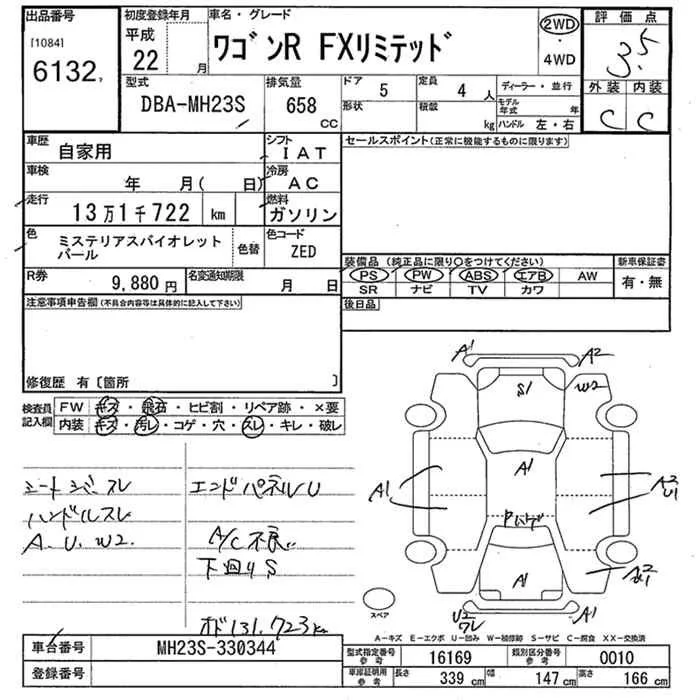 出品番号 初度登録年月 車名・グレード 評価点
[1084] 平成 22 月 ワゴンR FXリミテッド 2WD・4WD 3.5
6132
型式 排気量 ドア 5 定員 4 人 ディーラー・並行 外装 内装
DBA-MH23S 658 CC 形状 積載 kg モデル年式 年 C C
ハンドル 左・右
車歴 自家用 シフト IAT セールスポイント(正常に機能するものに限ります)
車検 年 月( 日) 冷房 AC
走行 13万1千722 km 燃料 ガソリン
色 ミステリアスバイオレットパール 色替 色コード ZED 装備品(純正品に限り○をつけてください) 新車保証書
PS PW ABS エアB AW 有・無
R券 9,880円 名変通知期限 月 日 SR ナビ TV カワ
注意事項申告欄(不具合内容等は具体的に記入して下さい) 後日品
修復歴 有〔箇所 〕
検査員記入欄 FW キズ・飛石・ヒビ割・リペア跡・×要
内装 キズ・汚レ・コゲ・穴・スレ・キレ・破レ
エンドパネルU
ハンドルスレ A/C不良
A.U.W2. 下回りS
オド131,723km
A1 A2
S1 W2
A1 A1 A2 U1
A1
A1
スペア
A-キズ E-エクボ U-凹み W-補修跡 S-サビ C-腐食 XX-交換済
車台番号 MH23S-330344 型式指定番号 参考 16169 類別区分番号 参考 0010
登録番号 車庫証明用 参考 長さ 339 cm 幅 147 cm 高さ 166 cm